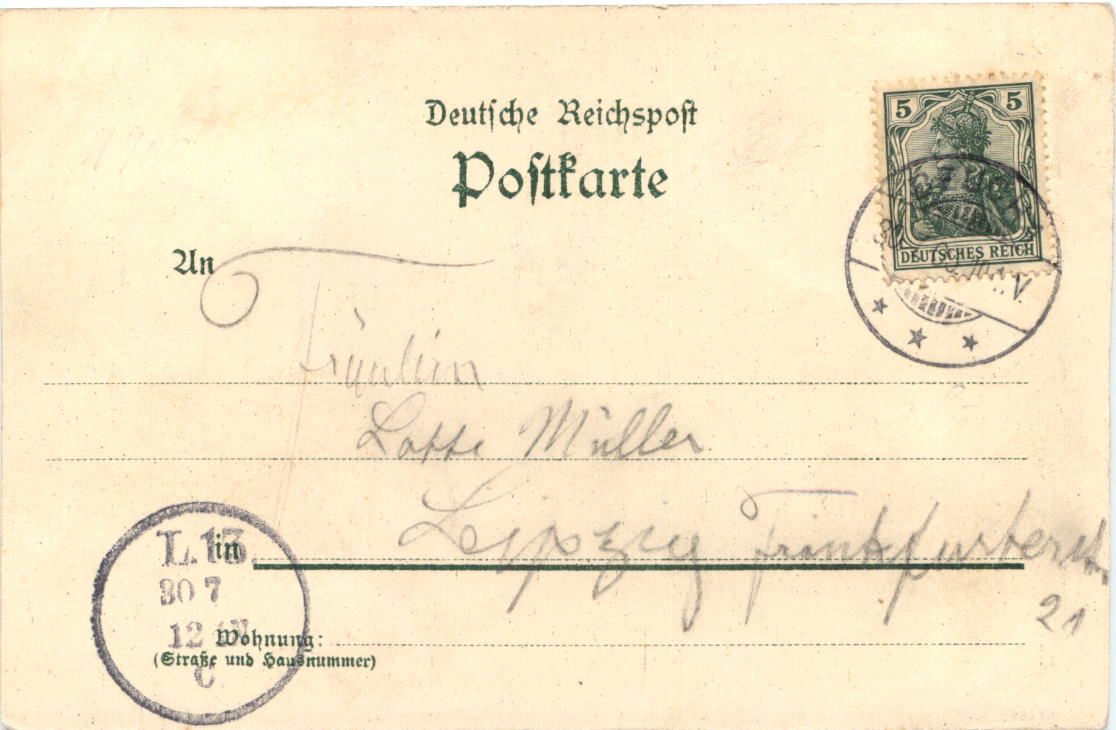 Deutsche Reichspost
Postkarte
5 5
DEUTSCHES REICH
30
V.
An
Fräulein
Lotte Müller
Leipzig Frankfurterstr.
21
in
L.13
30 7
12
C
Wohnung:
(Straße und Hausnummer)